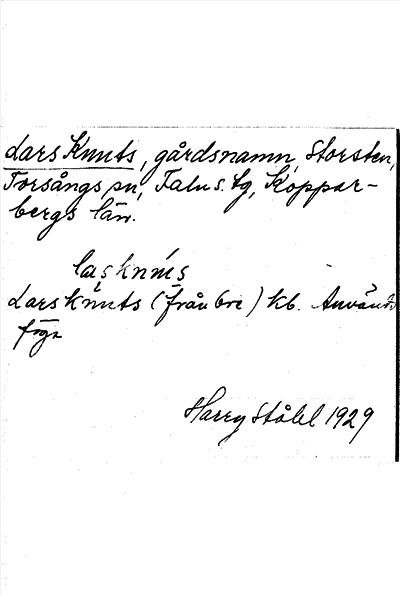 Lars Knuts, gårdsnamn, Storsten,
Torsångs sn, Falu s. tg, Koppar-
bergs län.
lasknuts
Lars knuts (från bre) kb. Använd
föga
Harry Ståhl 1929